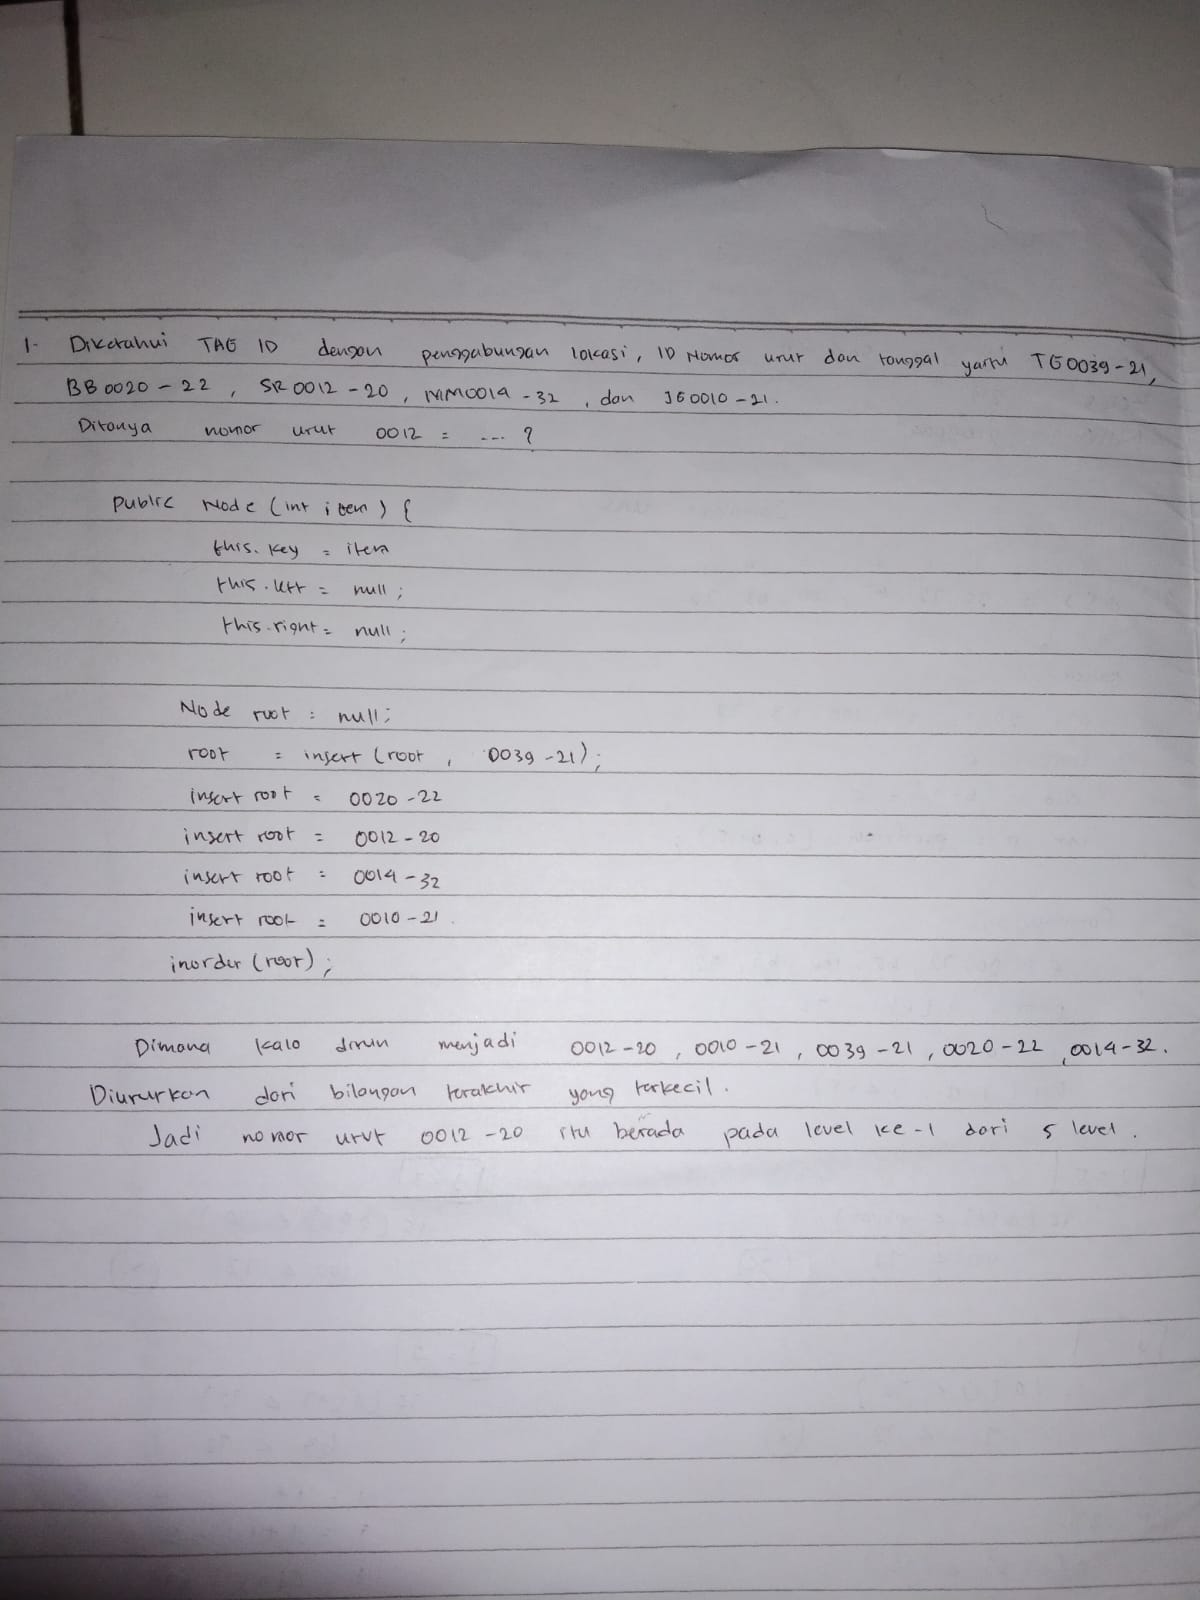 1. Diketahui TAG ID dengan penggabungan lokasi, ID Nomor urut dan tanggal yaitu TG0039-21,
BB0020-22, SR0012-20, MM0014-32, dan JG0010-21.
Ditanya nomor urut 0012 = ... ?
public Node (int item) {
this.key = item
this.left = null;
this.right = null;
Node root = null;
root = insert (root, 0039-21);
insert root = 0020-22
insert root = 0012-20
insert root = 0014-32
insert root = 0010-21.
inorder (root);
Dimana kalo dirun menjadi 0012-20, 0010-21, 0039-21, 0020-22, 0014-32.
Diururkan dari bilangan terakhir yang terkecil.
Jadi nomor urut 0012-20 itu berada pada level ke-1 dari 5 level.